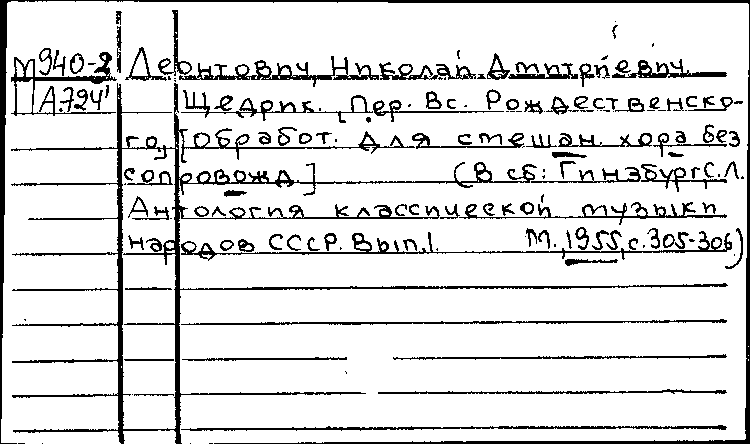 М940-2 Леонтович, Николай Дмитриевич.
А724 Щедрик. [Пер. Вс. Рождественско-
го, [обработ. для смешан. хора без
сопровожд.] (В сб: Гинзбург, С.Л.
Антология классической музыки
народов СССР. Вып. 1. М., 1955, с. 305-306)